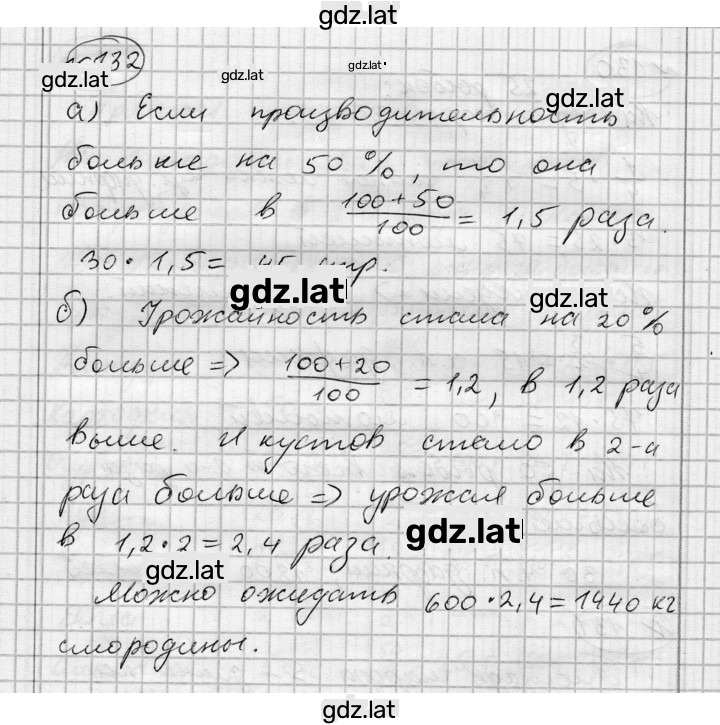 gdz.lat
132
gdz.lat gdz.lat gdz.lat
gdz.lat
а) Если производительность
больше на 50%, то она
больше в (100+50)/100 = 1,5 раза.
30 · 1,5 = 45 стр.
gdz.lat gdz.lat
б) Урожайность стала на 20%
больше => (100+20)/100 = 1,2, в 1,2 раза
выше. И кустов стало в 2-а
раза больше => урожая больше
в 1,2 · 2 = 2,4 раза.
gdz.lat
gdz.lat
Можно ожидать 600 · 2,4 = 1440 кг
смородины.
gdz.lat